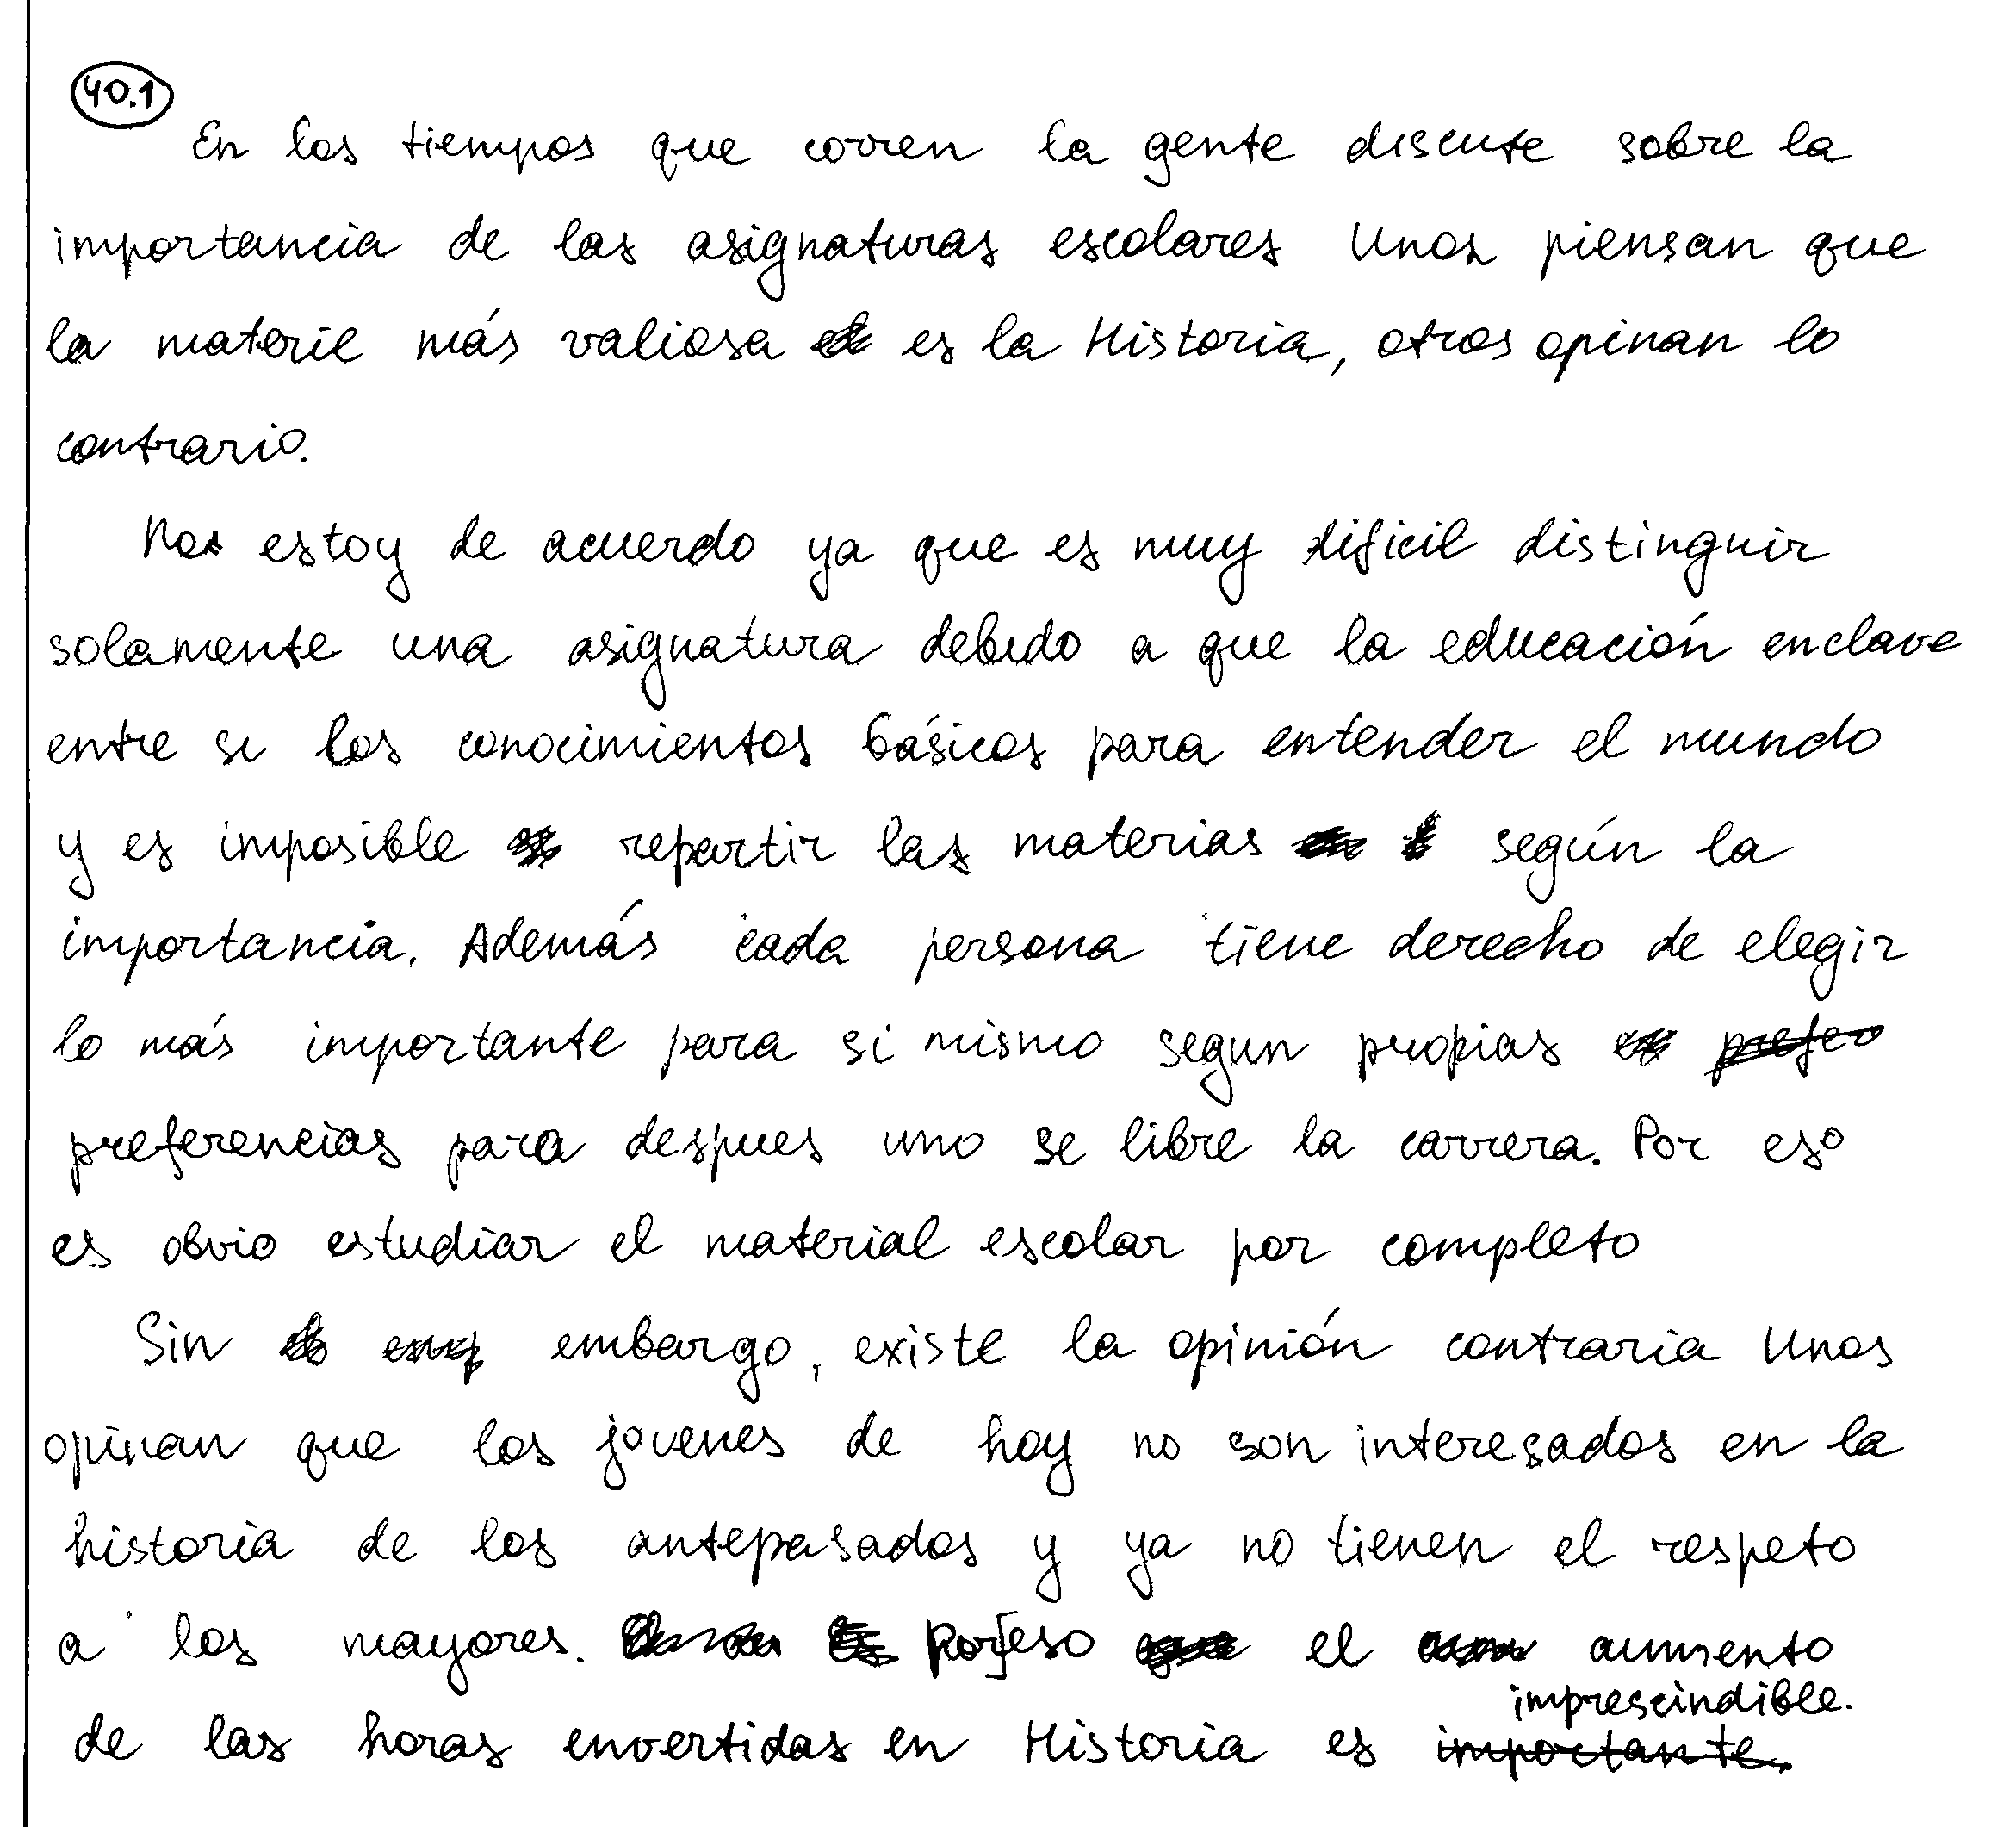 40.1
En los tiempos que corren la gente discute sobre la
importancia de las asignaturas escolares Unos piensan que
la materie más valiosa es la Historia, otros opinan lo
contrario.
No estoy de acuerdo ya que es muy dificil distinguir
solamente una asignatura debido a que la educación enclave
entre si los conocimientos básicos para entender el mundo
y es imposible repartir las materias según la
importancia. Además cada persona tiene derecho de elegir
lo más importante para si mismo segun propias
preferencias para despues uno se libre la carrera. Por eso
es obvio estudiar el material escolar por completo
Sin embargo, existe la opinión contraria Unos
opinan que los jovenes de hoy no son interesados en la
historia de los antepasados y ya no tienen el respeto
a los mayores. Por eso el aumento
imprescindible.
de las horas envertidas en Historia es importante.